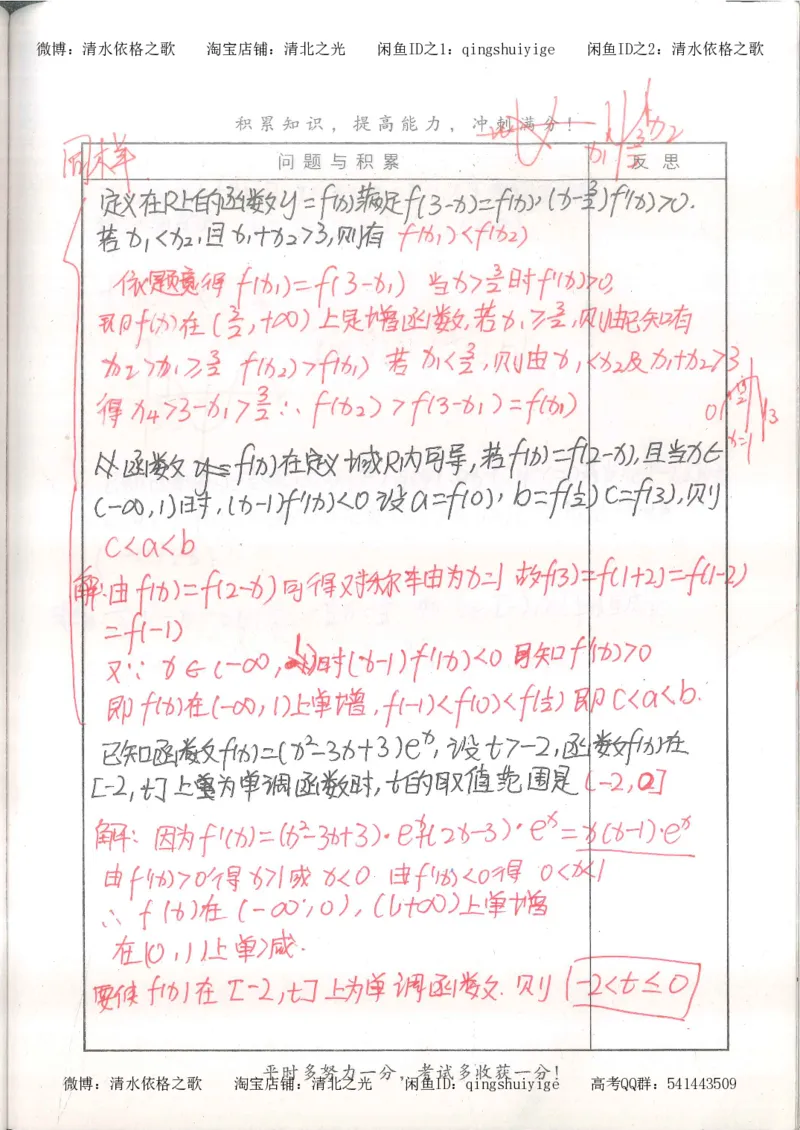 微博：清水依格之歌 淘宝店铺：清北之光 闲鱼ID之1：qingshuiyige 闲鱼ID之2：清水依格之歌
积累知识，提高能力，冲刺满分！
同样
问题与积累 反思
定义在R上的函数y=f(x)满足f(3-x)=f(x)，(x-3/2)f'(x)>0.
若x₁<x₂,且x₁+x₂>3,则有 f(x₁)<f(x₂)
依题意得 f(x₁)=f(3-x₁) 当x>3/2时f'(x)>0,
即f(x)在(3/2,+∞)上是增函数,若x₁≥3/2,则由已知有
x₂>x₁≥3/2 f(x₂)>f(x₁) 若x₁<3/2,则由x₁<x₂及x₁+x₂>3
得x₄>3-x₁>3/2 ∴f(x₂)>f(3-x₁)=f(x₁)
函数y=f(x)在定义域R内可导,若f(x)=f(2-x),且当x∈
(-∞,1)时,(x-1)f'(x)<0 设a=f(0), b=f(1/2) c=f(3),则
c<a<b
解:由f(x)=f(2-x)可得对称轴为x=1 故f(3)=f(1+2)=f(1-2)
=f(-1)
又∵ x∈(-∞,1)时(x-1)f'(x)<0 可知f'(x)>0
即f(x)在(-∞,1)上单增,f(-1)<f(0)<f(1/2)即c<a<b.
已知函数f(x)=(x²-3x+3)eˣ,设t>-2,函数f(x)在
[-2,t]上为单调函数时,t的取值范围是(-2,0]
解:因为f'(x)=(x²-3x+3)·eˣ+(2x-3)·eˣ=x(x-1)·eˣ
由f'(x)>0得x>1或x<0 由f'(x)<0得 0<x<1
∴ f(x)在(-∞,0),(1,+∞)上单增
在(0,1)上单减.
要使f(x)在[-2,t]上为单调函数.则 -2<t≤0
平时多努力一分，考试多收获一分！
微博：清水依格之歌 淘宝店铺：清北之光 闲鱼ID：qingshuiyige 高考QQ群：541443509